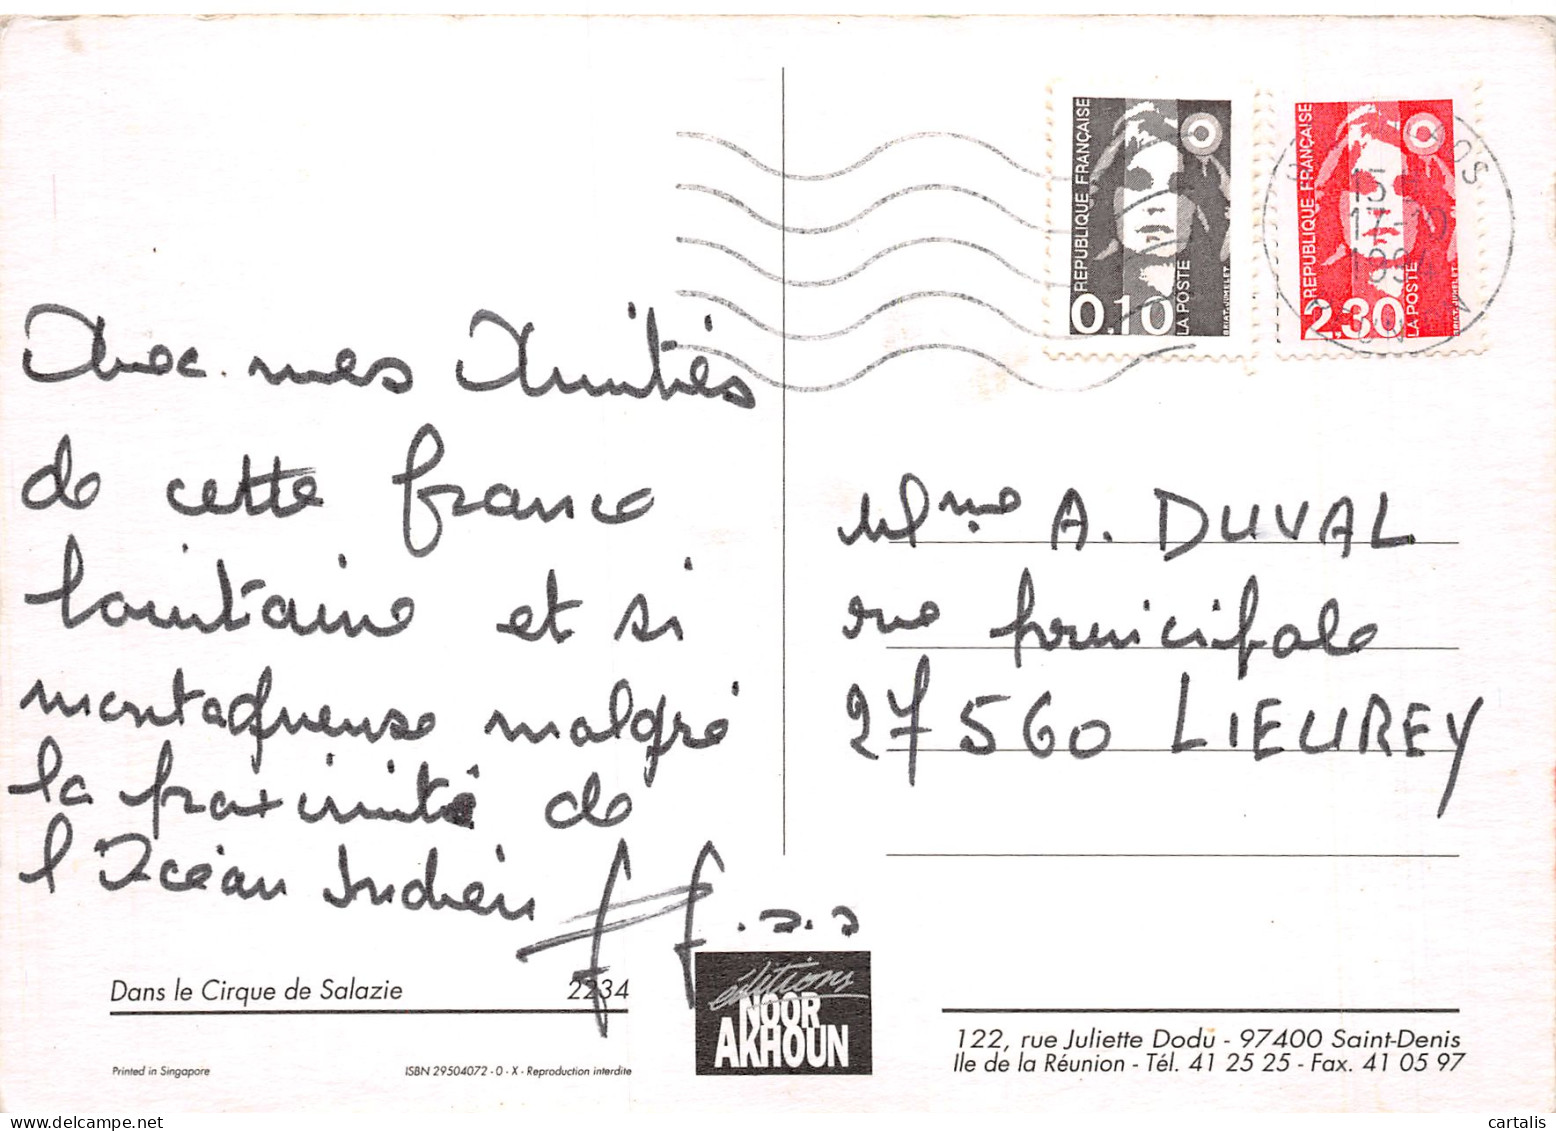 Avec mes Amitiés
de cette france
lointaine et si
montagneuse malgré
la proximité de
l'Océan Indien
Dans le Cirque de Salazie 2234
Printed in Singapore ISBN 29504072 - 0 - X - Reproduction interdite
éditions
NOOR
AKHOUN
REPUBLIQUE FRANÇAISE
0,10
LA POSTE
BRIAT-JUMELET
REPUBLIQUE FRANÇAISE
2,30
LA POSTE
BRIAT-JUMELET
15
17-10
1994
Mme A. DUVAL
rue principale
27560 LIEUREY
122, rue Juliette Dodu - 97400 Saint-Denis
Ile de la Réunion - Tél. 41 25 25 - Fax. 41 05 97
cartalis